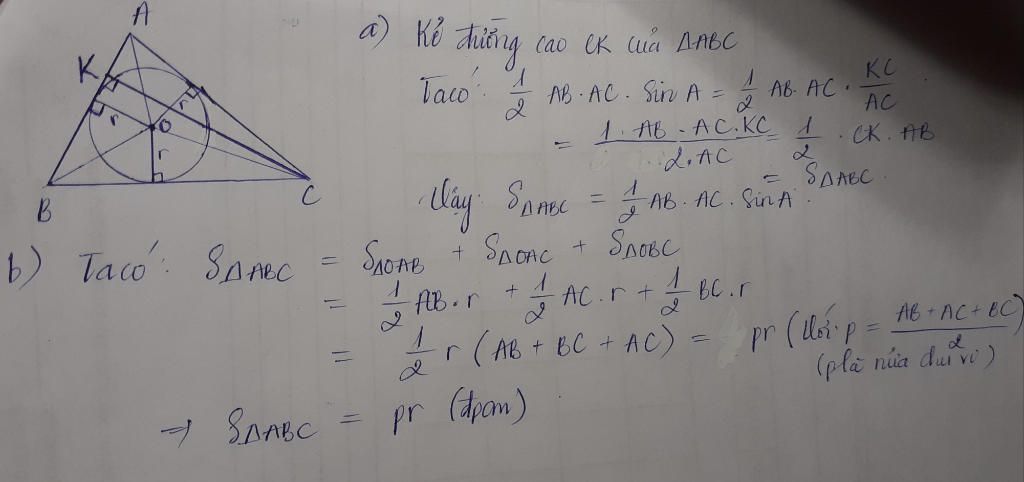 A
K
r
r
O
r
B
C
a) Kẻ đường cao CK của ΔABC
Ta có: 1/2 AB . AC . Sin A = 1/2 AB . AC . KC/AC
= 1 . AB . AC . KC / 2 . AC = 1/2 . CK . AB
= SΔABC.
Vậy: SΔABC = 1/2 AB . AC . Sin A.
b) Ta có: SΔABC = SΔOAB + SΔOAC + SΔOBC
= 1/2 AB . r + 1/2 AC . r + 1/2 BC . r
= 1/2 r (AB + BC + AC) = pr (Với p = AB + AC + BC / 2)
(p là nửa chu vi)
→ SΔABC = pr (đpcm)